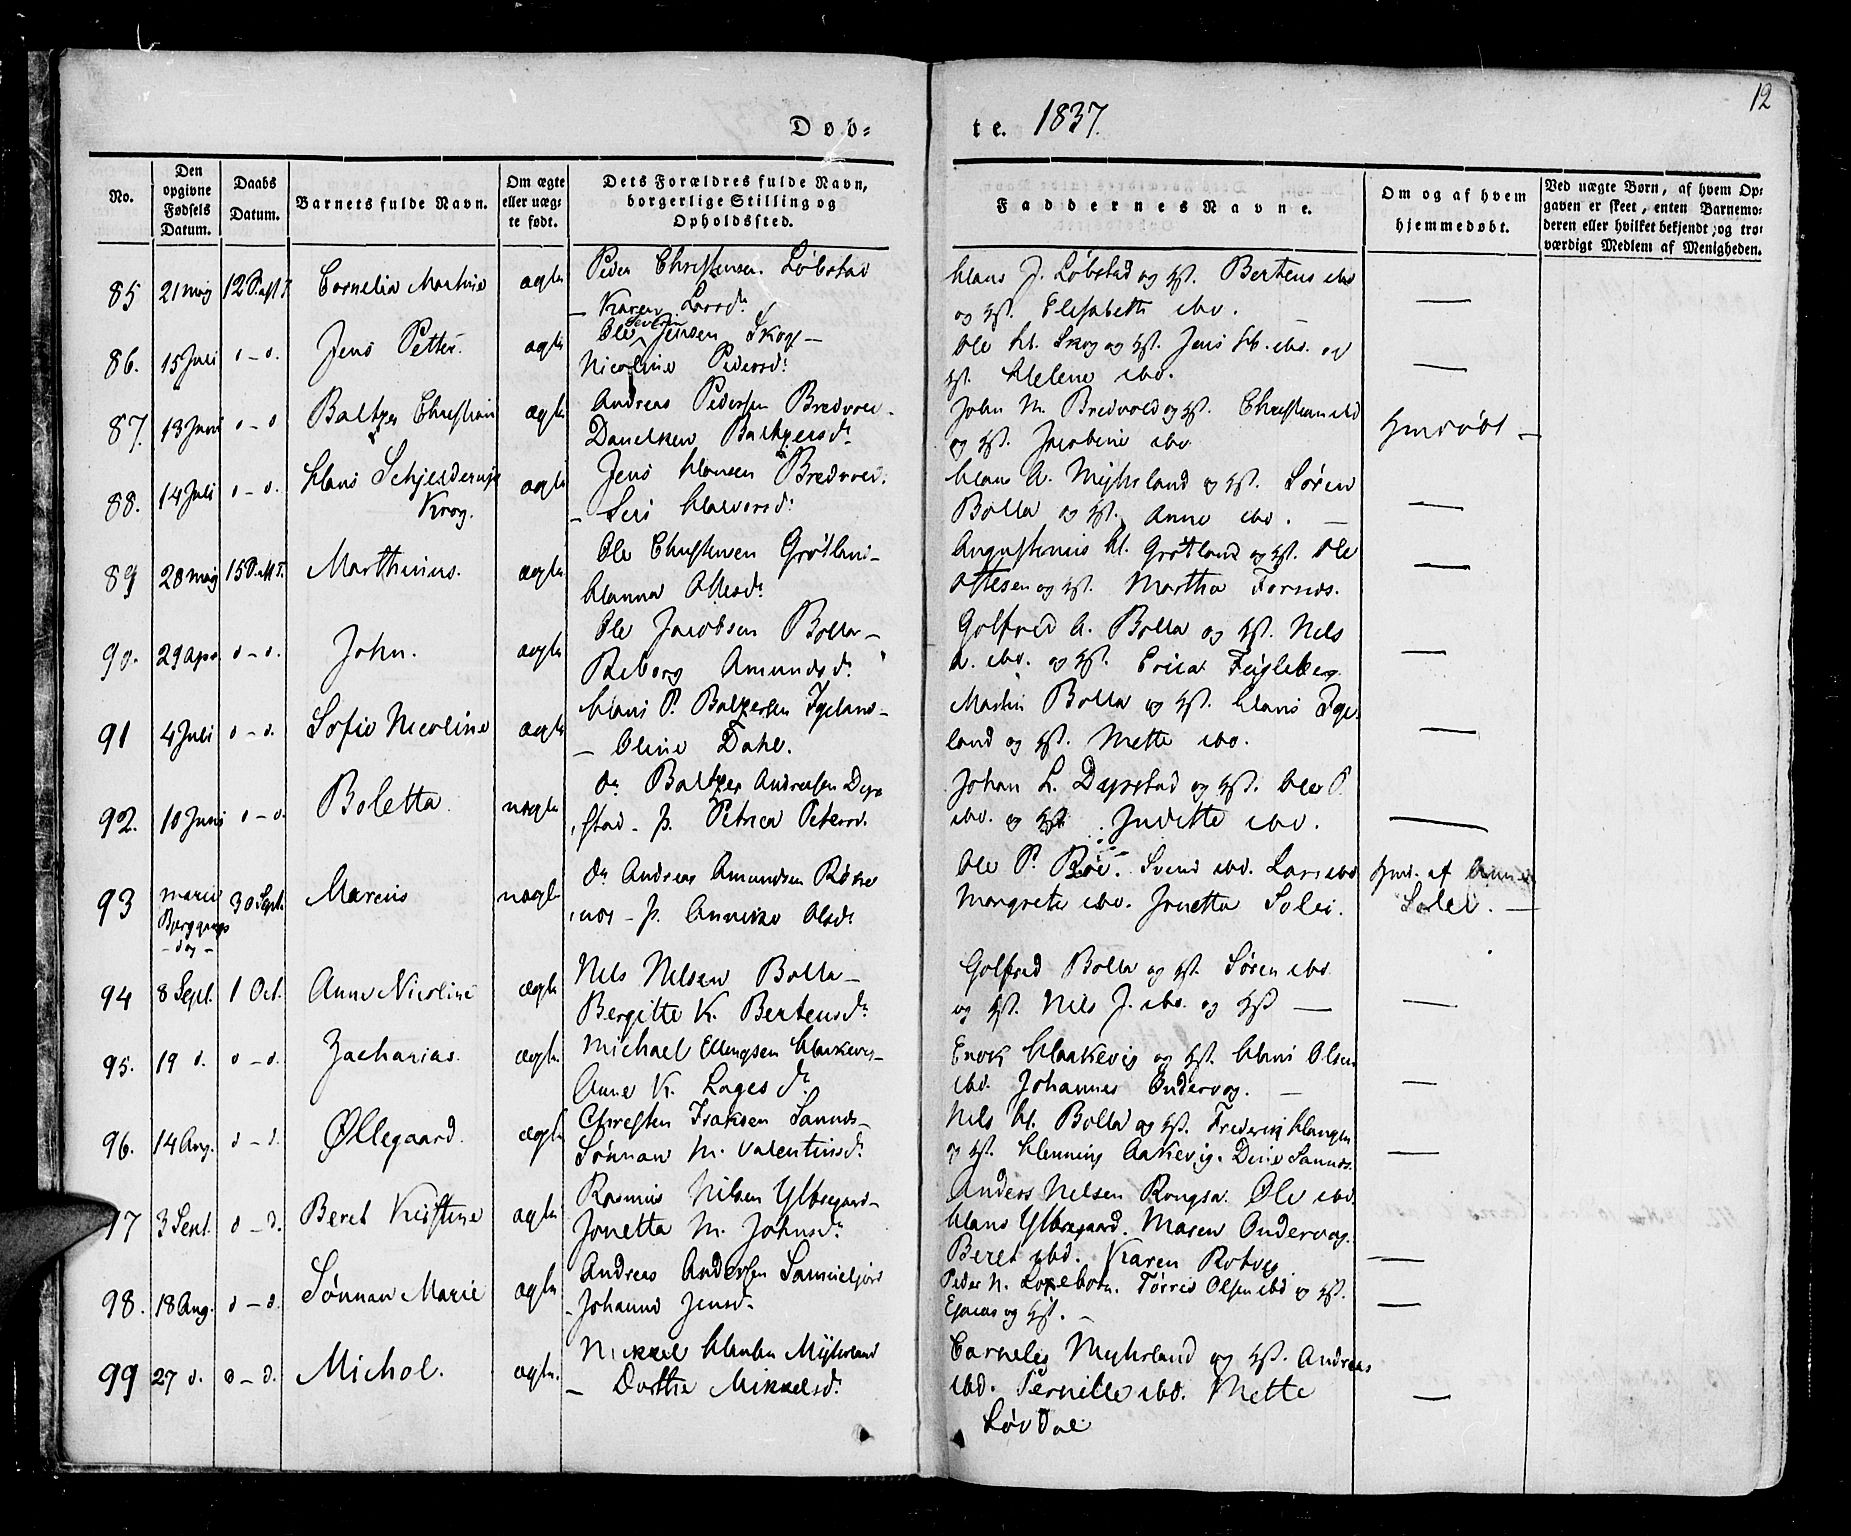 12
Døb=
te. 1837.
No.
Den opgivne Fødsels Datum.
Daabs Datum.
Barnets fulde Navn.
Om ægte eller uæg- te født.
Dets Forældres fulde Navn, borgerlige Stilling og Opholdssted.
Faddernes Navne.
Om og af hvem hjemmedøbt.
Ved uægte Børn, af hvem Op- gaven er skeet, enten Barnemo- deren eller hvilket bekjendt, og tro- værdigt Medlem af Menigheden.
85 21 Maj 12 P. Cornelia Martine ægte Peder Christensen Løbstad
– Karen Larsd.
Hans J. Løbstad og Hst. Bertens ibd
og Hst. Elisabeth ibd. —
86. 15 Juli d – d. Jens Petter. ægte Ole Jensen Skog –
Nicoline Pedersd.
Ole H. Skog og Hst. Jens ibd. og
Hst. Helene ibd. —
87. 13 Juni d – d Baltzer Christian ægte Andreas Pedersen Bredvold.
Baltzersd.
John M. Bredvold og Hst. Christian ibd
og Hst. Jacobine ibd —
88. 14 Juli d – d. Hans Schjelderup
Krog. ægte Jens Hansen Bredvold.
– Siri Halvorsd.
Hans A. Myhrland og Hst. Søren
Bolla og Hst. Anne ibd. —
89 28 Maj 15 P. Marthinus. ægte Ole Christensen Grøtland –
Hanna Ottesd.
Augustinus H. Grøtland og Hst. Ole
Ottesen og Hst. Martha Fornæs. —
90. 29 Apr. d – d. John. ægte Ole Jacobsen Bolla –
Reborg Amundsd.
Golfred A. Bolla og Hst. Nils
A. ibd. og Hst. Erica Fugleberg —
91 4 Juli d – d. Sofie Nicoline ægte Hans P. Baltzersen Igeland –
– Oline Dahl.
Martin Bolla og Hst. Hans Ige-
land og Hst. Mette ibd. —
92. 10 Juni d – d. Boletta uægte Baltzer Andreasen Dyr
stad – p. Petrica Petersd.
Johan L. Dyrstad og Hst. Ole P.
ibd. og Hst. Juditte ibd. —
93 Mariæ
dag – 30 Sept. Marcus uægte Andreas Amundsen
næs – p. Annike Olsd.
Ole P. Røe. Svend ibd. Lars ibd
Margrete ibd. Jonetta Solei.
Hmd. af
Solei. —
94 8 Sept. 1 Oct. Anne Nicoline ægte Nils Nilsen Bolla –
Bergitte K. Bertensd.
Golfred Bolla og Hst. Søren ibd
og Hst. Nils J. ibd. og Hst —
95. 19 d. d – d. Zacharias. ægte Michael Ellingsen Haakevig –
Anne K. Lagesd.
Enok Haakevig og Hst. Hans Olsen
ibd. Johannes Ondervog. —
96. 14 Aug. d – d. Øllegaard. ægte Christen Isaksen Sannæs –
Sønnau M. Valentinsd.
Nils H. Bolla og Hst. Frederik
og Hst. Henning Aakevig. Sannæs. —
97 3 Sept. d – d. Beret Kirstine ægte Rasmus Nilsen Ylbregaard –
Jonetta M. Johnsd.
Anders Nelsen Rongsa. Ole ibd.
Hans Ylbregaard. Maren Ondervog.
Beret ibd. Karen Rotvig. —
98. 18 Aug. d – d. Sønnau Marie ægte Andreas Andersen
– Johanna Jensd.
Peder N. Tørris Olsen ibd og Hst.
Esaias og Hst. – —
99 27 d. d – d. Michol. ægte. Mikkel Hansen Myhrland
– Dorthe Mikkelsd.
Cornelis Myhrland og Hst. Andreas
ibd. Pernille ibd. Mette
Løvdal —